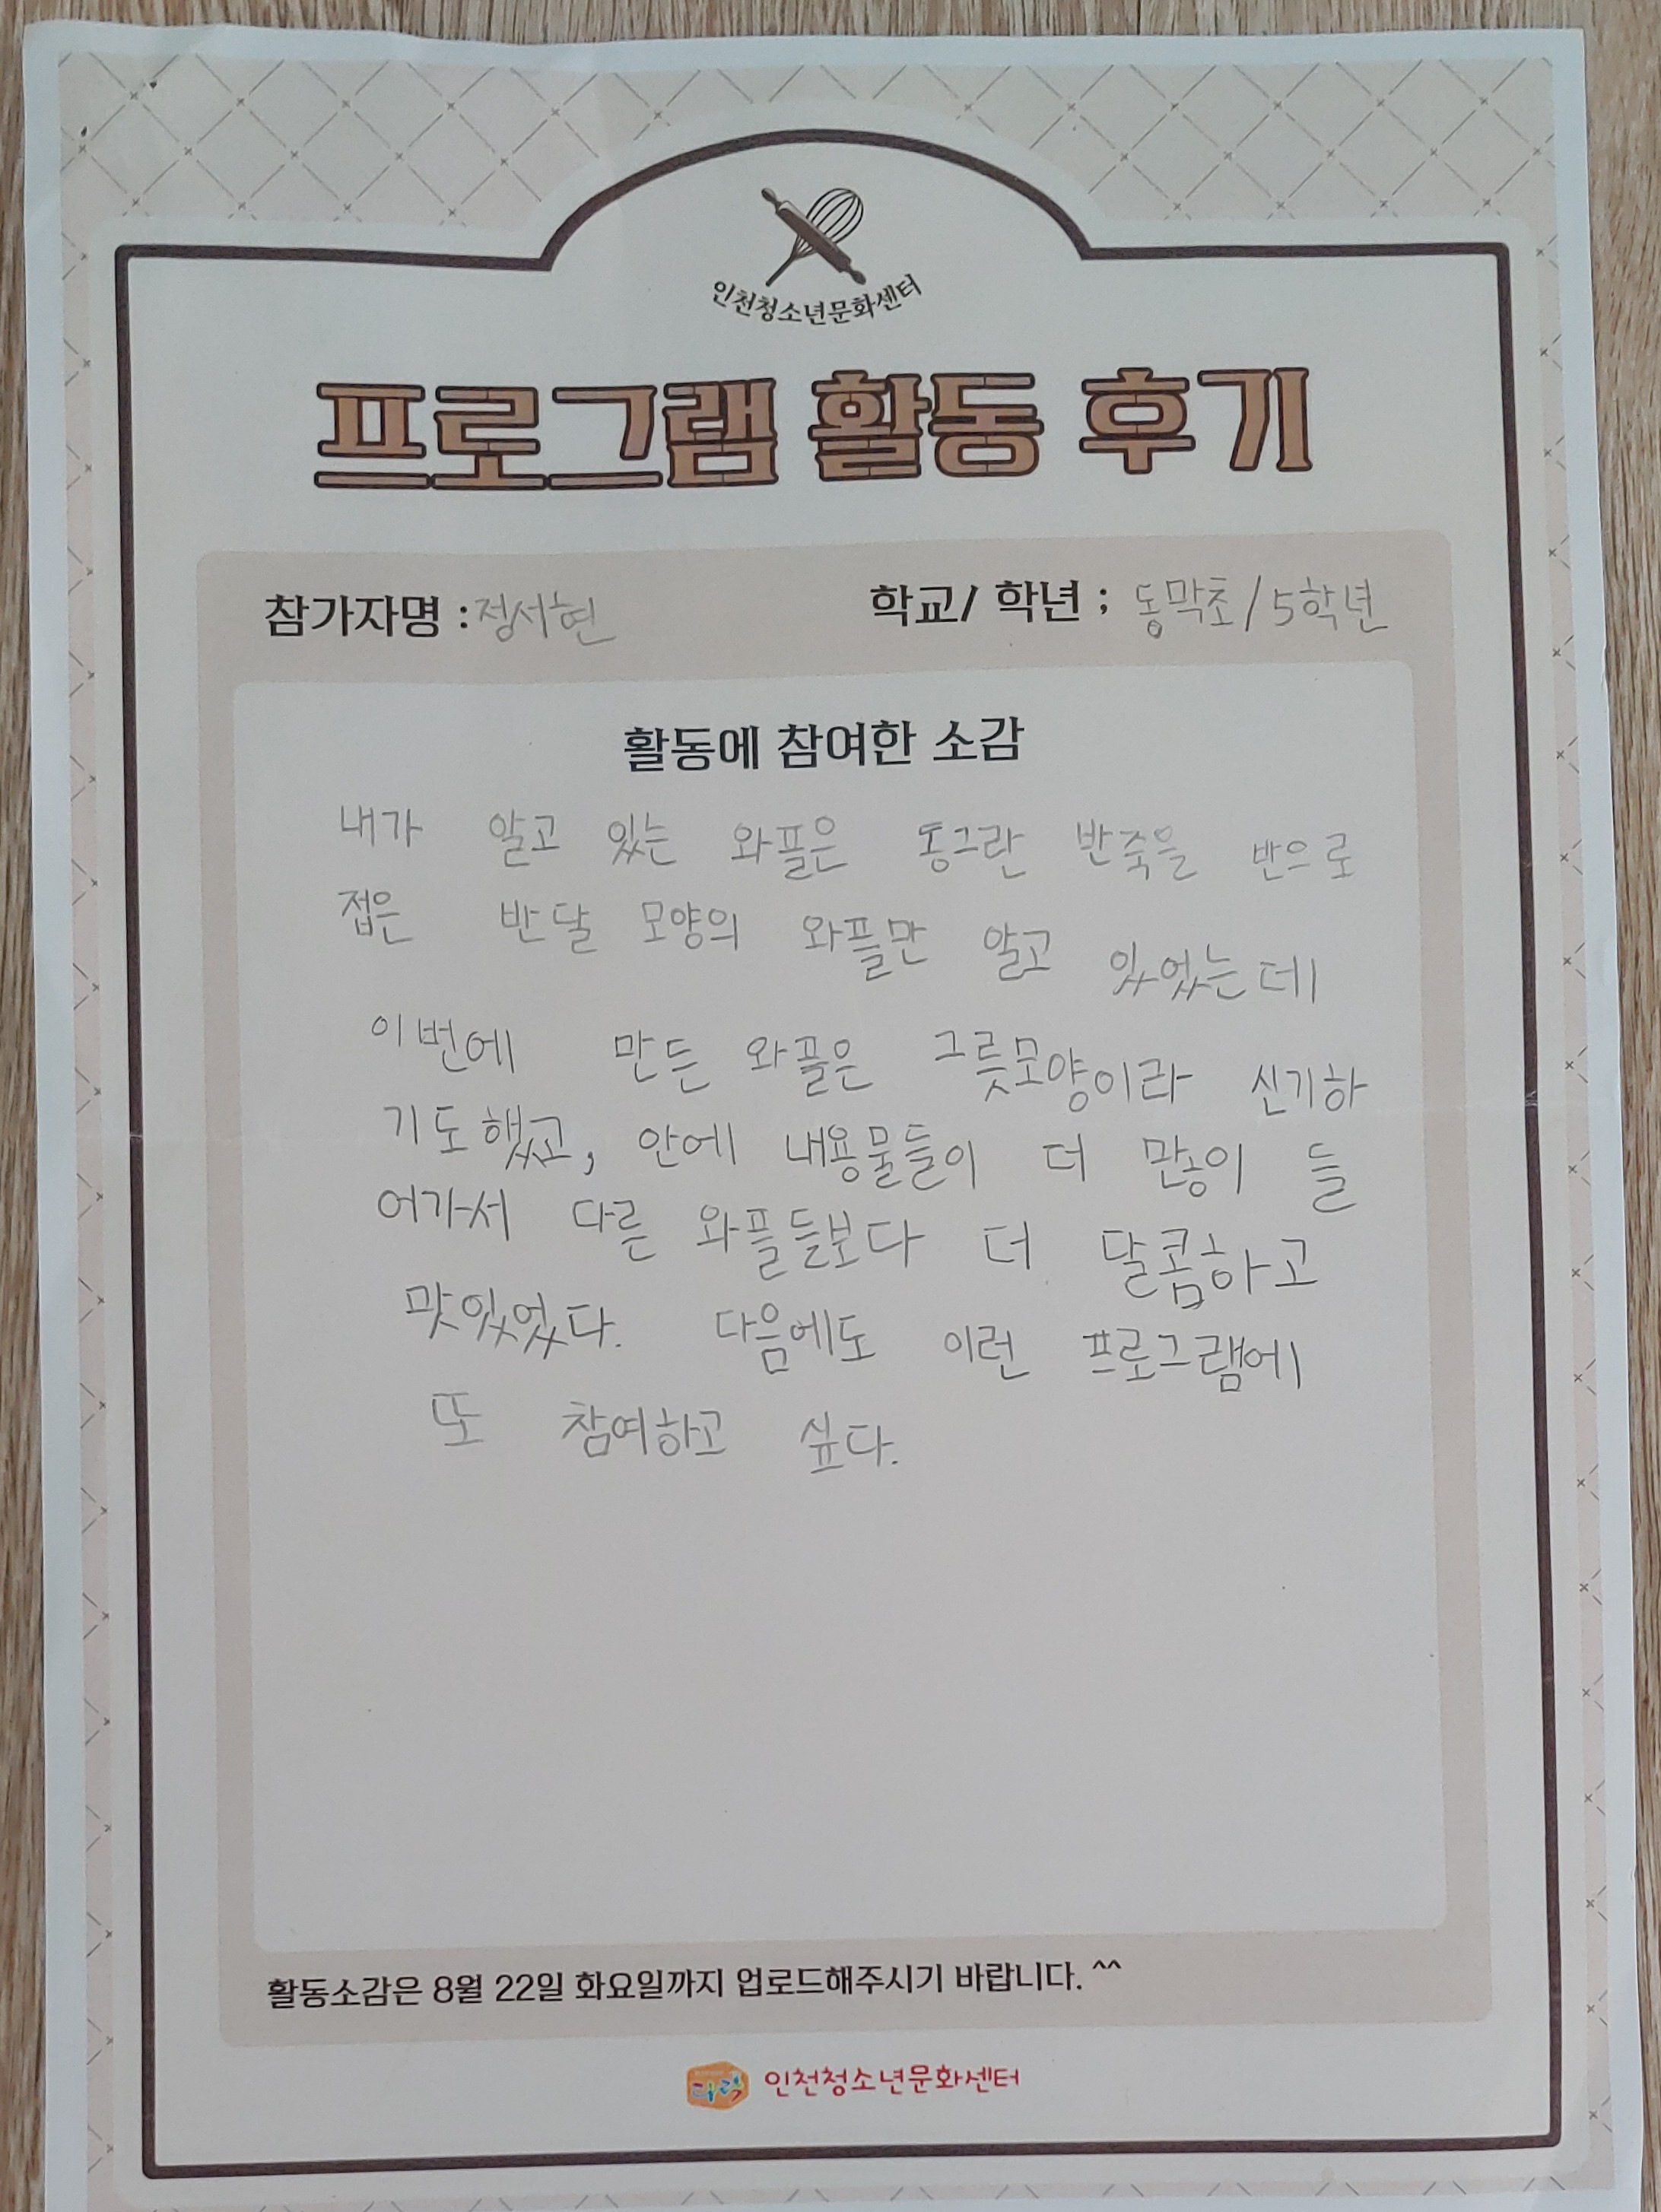 인천청소년문화센터
프로그램 활동 후기
참가자명 : 정서현 학교/ 학년 ; 동막초/5학년
활동에 참여한 소감
내가 알고 있는 와플은 동그란 반죽을 반으로
접은 반달 모양의 와플만 알고 있었는데
이번에 만든 와플은 그릇모양이라 신기하
기도했고, 안에 내용물들이 더 많이 들
어가서 다른 와플들보다 더 달콤하고
맛있었다. 다음에도 이런 프로그램에
또 참여하고 싶다.
활동소감은 8월 22일 화요일까지 업로드해주시기 바랍니다. ^^
다락 인천청소년문화센터